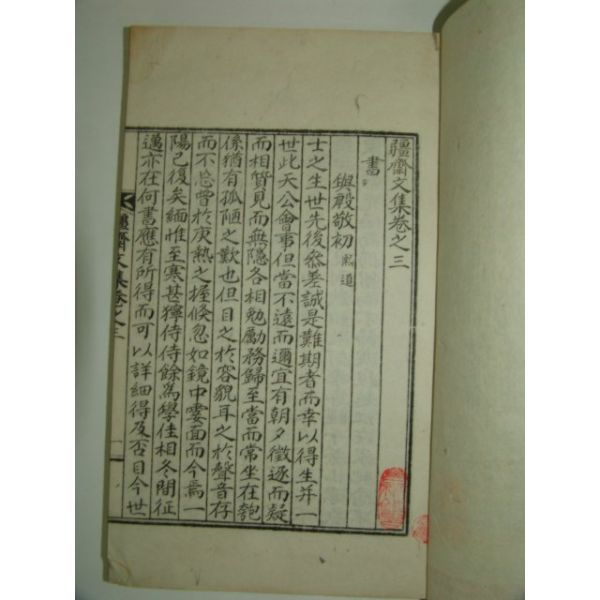 疆齋文集卷之三
書
與殷敬初 熙道
士之生世先後參差誠是難期者而幸以得生并一
世此天公會事但當不遠而邇宜有朝夕徵逐而疑
而相質見而無隱各相勉勵務歸至當而常坐在匏
係猶有孤陋之歎也但目之於容貌耳之於聲音存
而不忘曾於庚熱之握倏忽如鏡中雯面而今焉一
陽已復矣緬惟至寒甚獰侍侍餘爲學佳相冬間征
邁亦在何書應有所得而可以詳細得及否目今世
疆齋文集卷之三
一